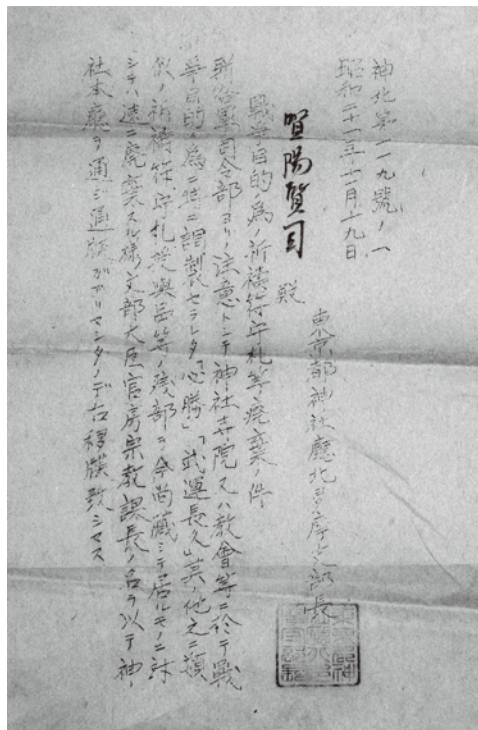 神北第一一九號ノ一
昭和二十一年十一月十九日
東京都神社廳北多摩支部長
賀陽賢司 殿
戰爭目的ノ爲ノ祈禱符守札等廃棄ノ件
聯合軍司令部ヨリノ注意トシテ神社寺院又ハ教會等ニ於テ戰
爭目的ノ爲ニ特ニ調製セラレタ「必勝」「武運長久」其ノ他之ニ類
似ノ祈禱符、守札授與品等ノ残部ヲ今尚藏シテ居ルモノニ対
シテハ速ニ廃棄スル様文部大臣官房宗教課長ノ名ヲ以テ神
社本廳ヲ通ジ通牒ガアリマシタノデ右移牒致シマス